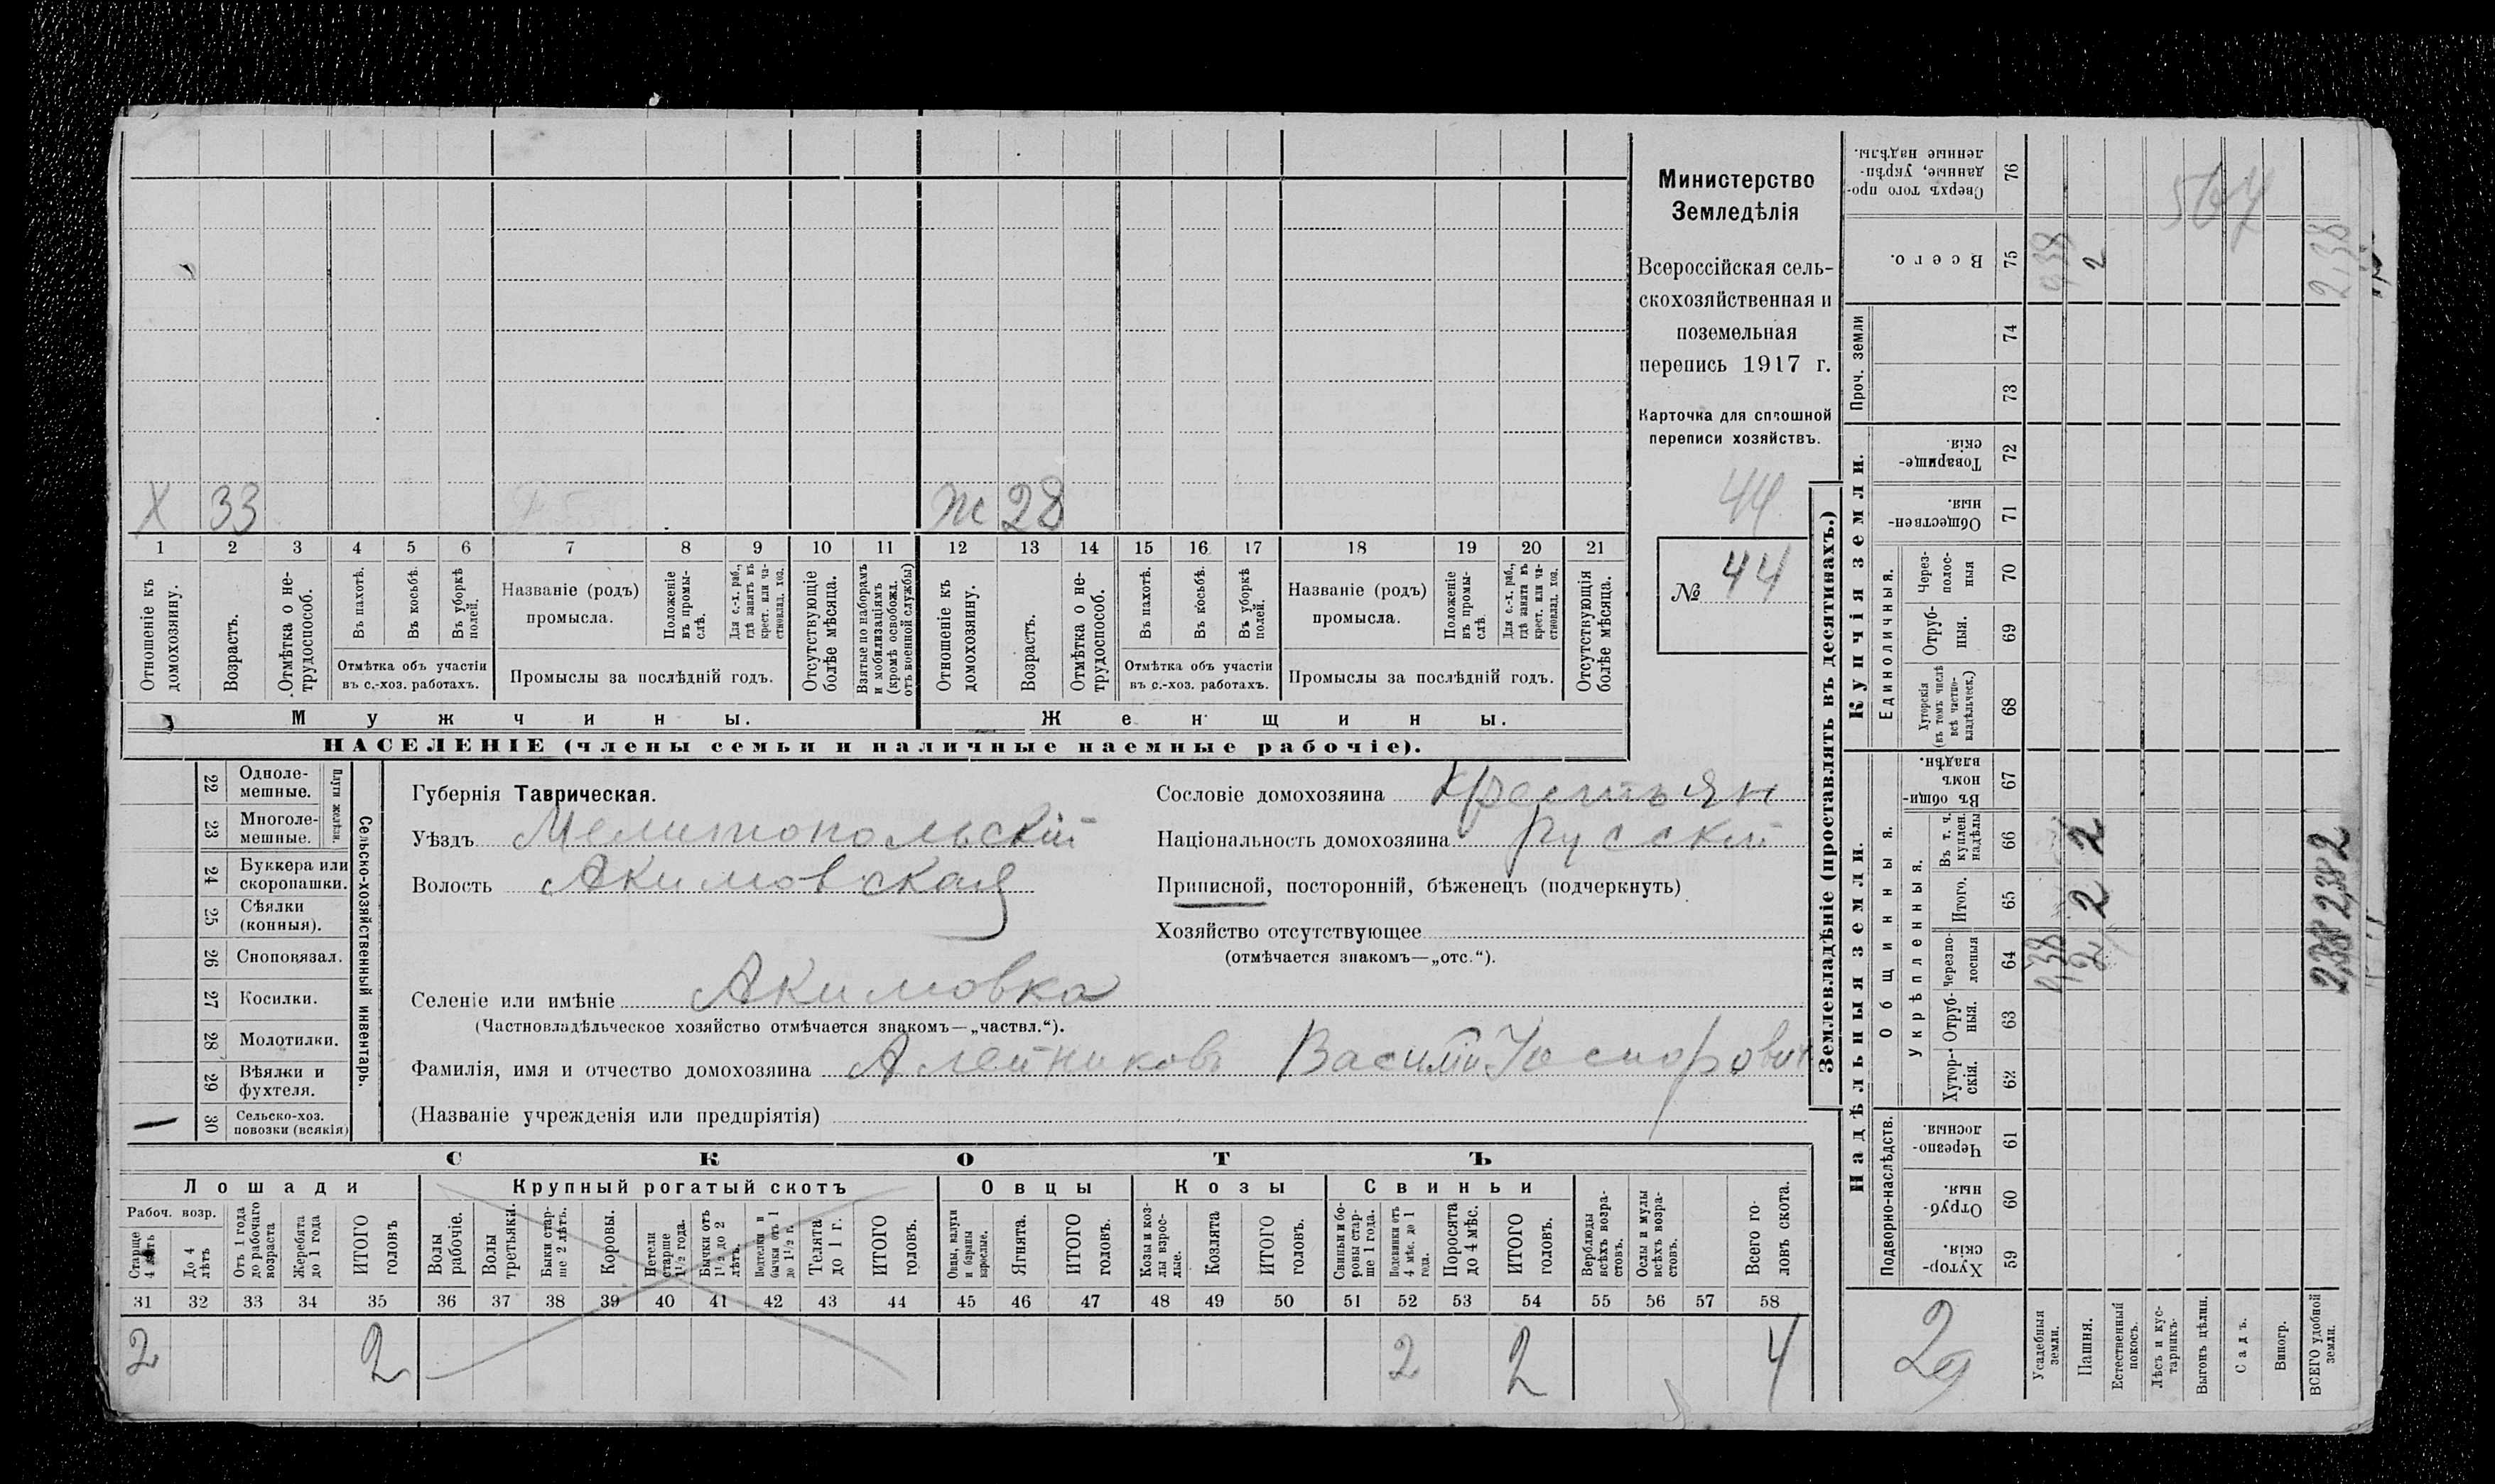 Министерство
Земледѣлія
Всероссійская сель-
скохозяйственная и
поземельная
перепись 1917 г.
Карточка для сплошной
переписи хозяйствъ.
44
№ 44
Х 33
Ж 28
1 2 3 4 5 6 7 8 9 10 11 12 13 14 15 16 17 18 19 20 21
Отношеніе къ домохозяину.
Возрастъ.
Отмѣтка о не-трудоспособ.
Въ пахотѣ.
Въ косьбѣ.
Въ уборкѣ полей.
Отмѣтка объ участіи
въ с.-хоз. работахъ.
Названіе (родъ)
промысла.
Положеніе въ промы-слѣ.
Для с.-х. раб., гдѣ занятъ въ крест. или ча-стновлад. хоз.
Промыслы за послѣдній годъ.
Отсутствующіе болѣе мѣсяца.
Взятые по наборамъ и мобилизаціямъ (кромѣ освобожд. отъ военной службы)
Отношеніе къ домохозяину.
Возрастъ.
Отмѣтка о не-трудоспособ.
Въ пахотѣ.
Въ косьбѣ.
Въ уборкѣ полей.
Отмѣтка объ участіи
въ с.-хоз. работахъ.
Названіе (родъ)
промысла.
Положеніе въ промы-слѣ.
Для с.-х. раб., гдѣ занята въ крест. или ча-стновлад. хоз.
Промыслы за послѣдній годъ.
Отсутствующія болѣе мѣсяца.
Мужчины.
Женщины.
НАСЕЛЕНІЕ (члены семьи и наличные наемные рабочіе).
Сельско-хозяйственный инвентарь.
Плуги желѣзн.
22 Одноле-мешные.
23 Многоле-мешные.
24 Буккера или скоропашки.
25 Сѣялки (конныя).
26 Сноповязал.
27 Косилки.
28 Молотилки.
29 Вѣялки и фухтеля.
30 Сельско-хоз. повозки (всякія)
Губернія Таврическая.
Уѣздъ Мелитопольскій
Волость Акимовская
Сословіе домохозяина Крестьян
Національность домохозяина Русскій
Приписной, посторонній, бѣженецъ (подчеркнуть)
Хозяйство отсутствующее
(отмѣчается знакомъ—„отс.“).
Селеніе или имѣніе Акимовка
(Частновладѣльческое хозяйство отмѣчается знакомъ—„частвл.“).
Фамилія, имя и отчество домохозяина Алейниковъ Василій
(Названіе учрежденія или предпріятія)
СКОТЪ
Лошади
Крупный рогатый скотъ
Овцы
Козы
Свиньи
Рабоч. возр.
Старше 4 лѣтъ
До 4 лѣтъ
Отъ 1 года до рабочаго возраста
Жеребята до 1 года
ИТОГО головъ
Волы рабочіе.
Волы третьяки.
Быки стар-ше 2 лѣтъ.
Коровы.
Нетели старше 1½ года.
Бычки отъ 1½ до 2 лѣтъ.
Подтелки и бычки отъ 1 до 1½ г.
Телята до 1 г.
ИТОГО головъ.
Овцы, валухи и бараны взрослые.
Ягнята.
ИТОГО головъ.
Козы и коз-лы взрос-лые.
Козлята
ИТОГО головъ.
Свиньи и бо-ровы стар-ше 1 года.
Подсвинки отъ 4 мѣс. до 1 года.
Поросята до 4 мѣс.
ИТОГО головъ.
Верблюды всѣхъ возра-стовъ.
Ослы и мулы всѣхъ возра-стовъ.
Всего го-ловъ скота.
31 32 33 34 35 36 37 38 39 40 41 42 43 44 45 46 47 48 49 50 51 52 53 54 55 56 57 58
2 2 2 2 4
Землевладѣніе (проставлять въ десятинахъ.)
Купчія земли.
Надѣльныя земли.
Сверхъ того про-данные, укрѣп-ленные надѣлы. 76
Всего. 75
Проч. земли 74
73
Товарище-скія. 72
Обществен-ныя. 71
Единоличныя.
Через-полос-ныя 70
Отруб-ныя. 69
Хуторскія (въ томъ числѣ всѣ частно-владѣльческ.) 68
Общинныя.
Въ общин-номъ владѣн. 67
Укрѣпленныя.
Въ т. ч. куплен. надѣлы 66
Итого. 65
Черезпо-лосныя 64
Отруб-ныя. 63
Хутор-скія. 62
Подворно-наслѣдств.
Черезпо-лосныя. 61
Отруб-ныя. 60
Хутор-скія. 59
Усадебныя земли.
Пашня.
Естественный покосъ.
Лѣсъ и кус-тарникъ.
Выгонъ цѣлин.
Садъ.
Виногр.
ВСЕГО удобной земли.
2
2
2
2
2,38